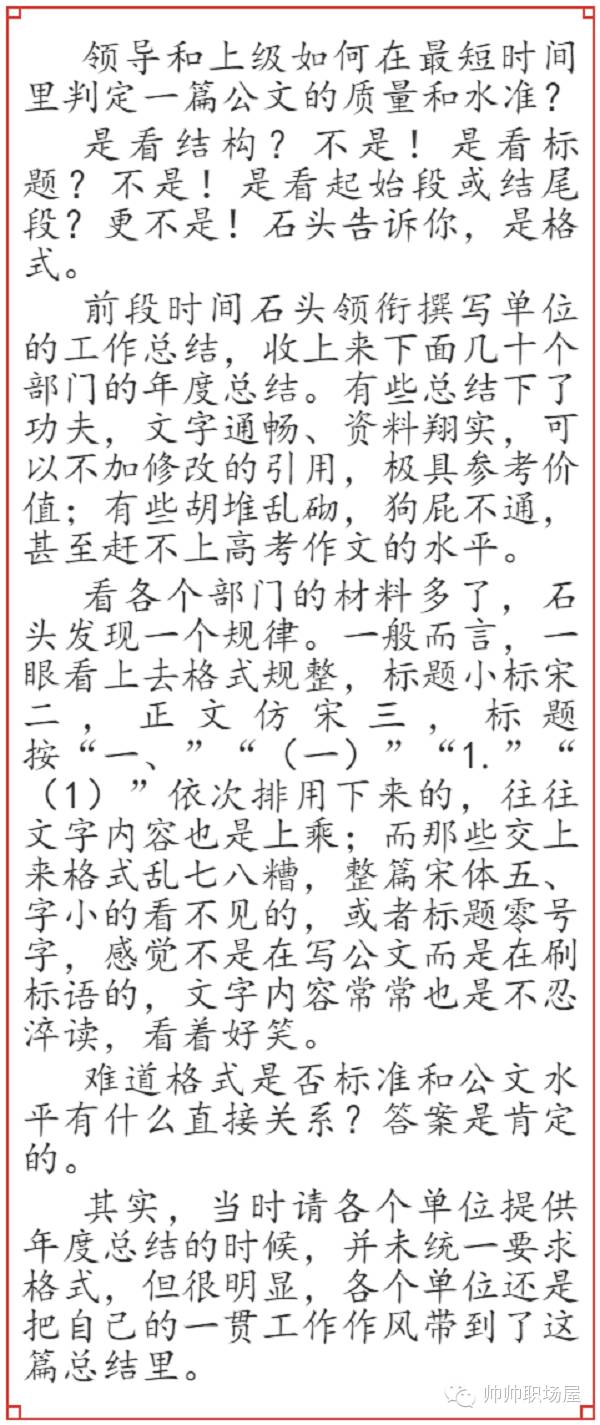 领导和上级如何在最短时间
里判定一篇公文的质量和水准？
是看结构？不是！是看标
题？不是！是看起始段或结尾
段？更不是！石头告诉你，是格
式。
前段时间石头领衔撰写单位
的工作总结，收上来下面几十个
部门的年度总结。有些总结下了
功夫，文字通畅、资料翔实，可
以不加修改的引用，极具参考价
值；有些胡堆乱砌，狗屁不通，
甚至赶不上高考作文的水平。
看各个部门的材料多了，石
头发现一个规律。一般而言，一
眼看上去格式规整，标题小标宋
二，正文仿宋三，标题
按“一、”“（一）”“1.”“
（1）”依次排用下来的，往往
文字内容也是上乘；而那些交上
来格式乱七八糟，整篇宋体五、
字小的看不见的，或者标题零号
字，感觉不是在写公文而是在刷
标语的，文字内容常常也是不忍
淬读，看着好笑。
难道格式是否标准和公文水
平有什么直接关系？答案是肯定
的。
其实，当时请各个单位提供
年度总结的时候，并未统一要求
格式，但很明显，各个单位还是
把自己的一贯工作作风带到了这
篇总结里。
帅帅职场屋